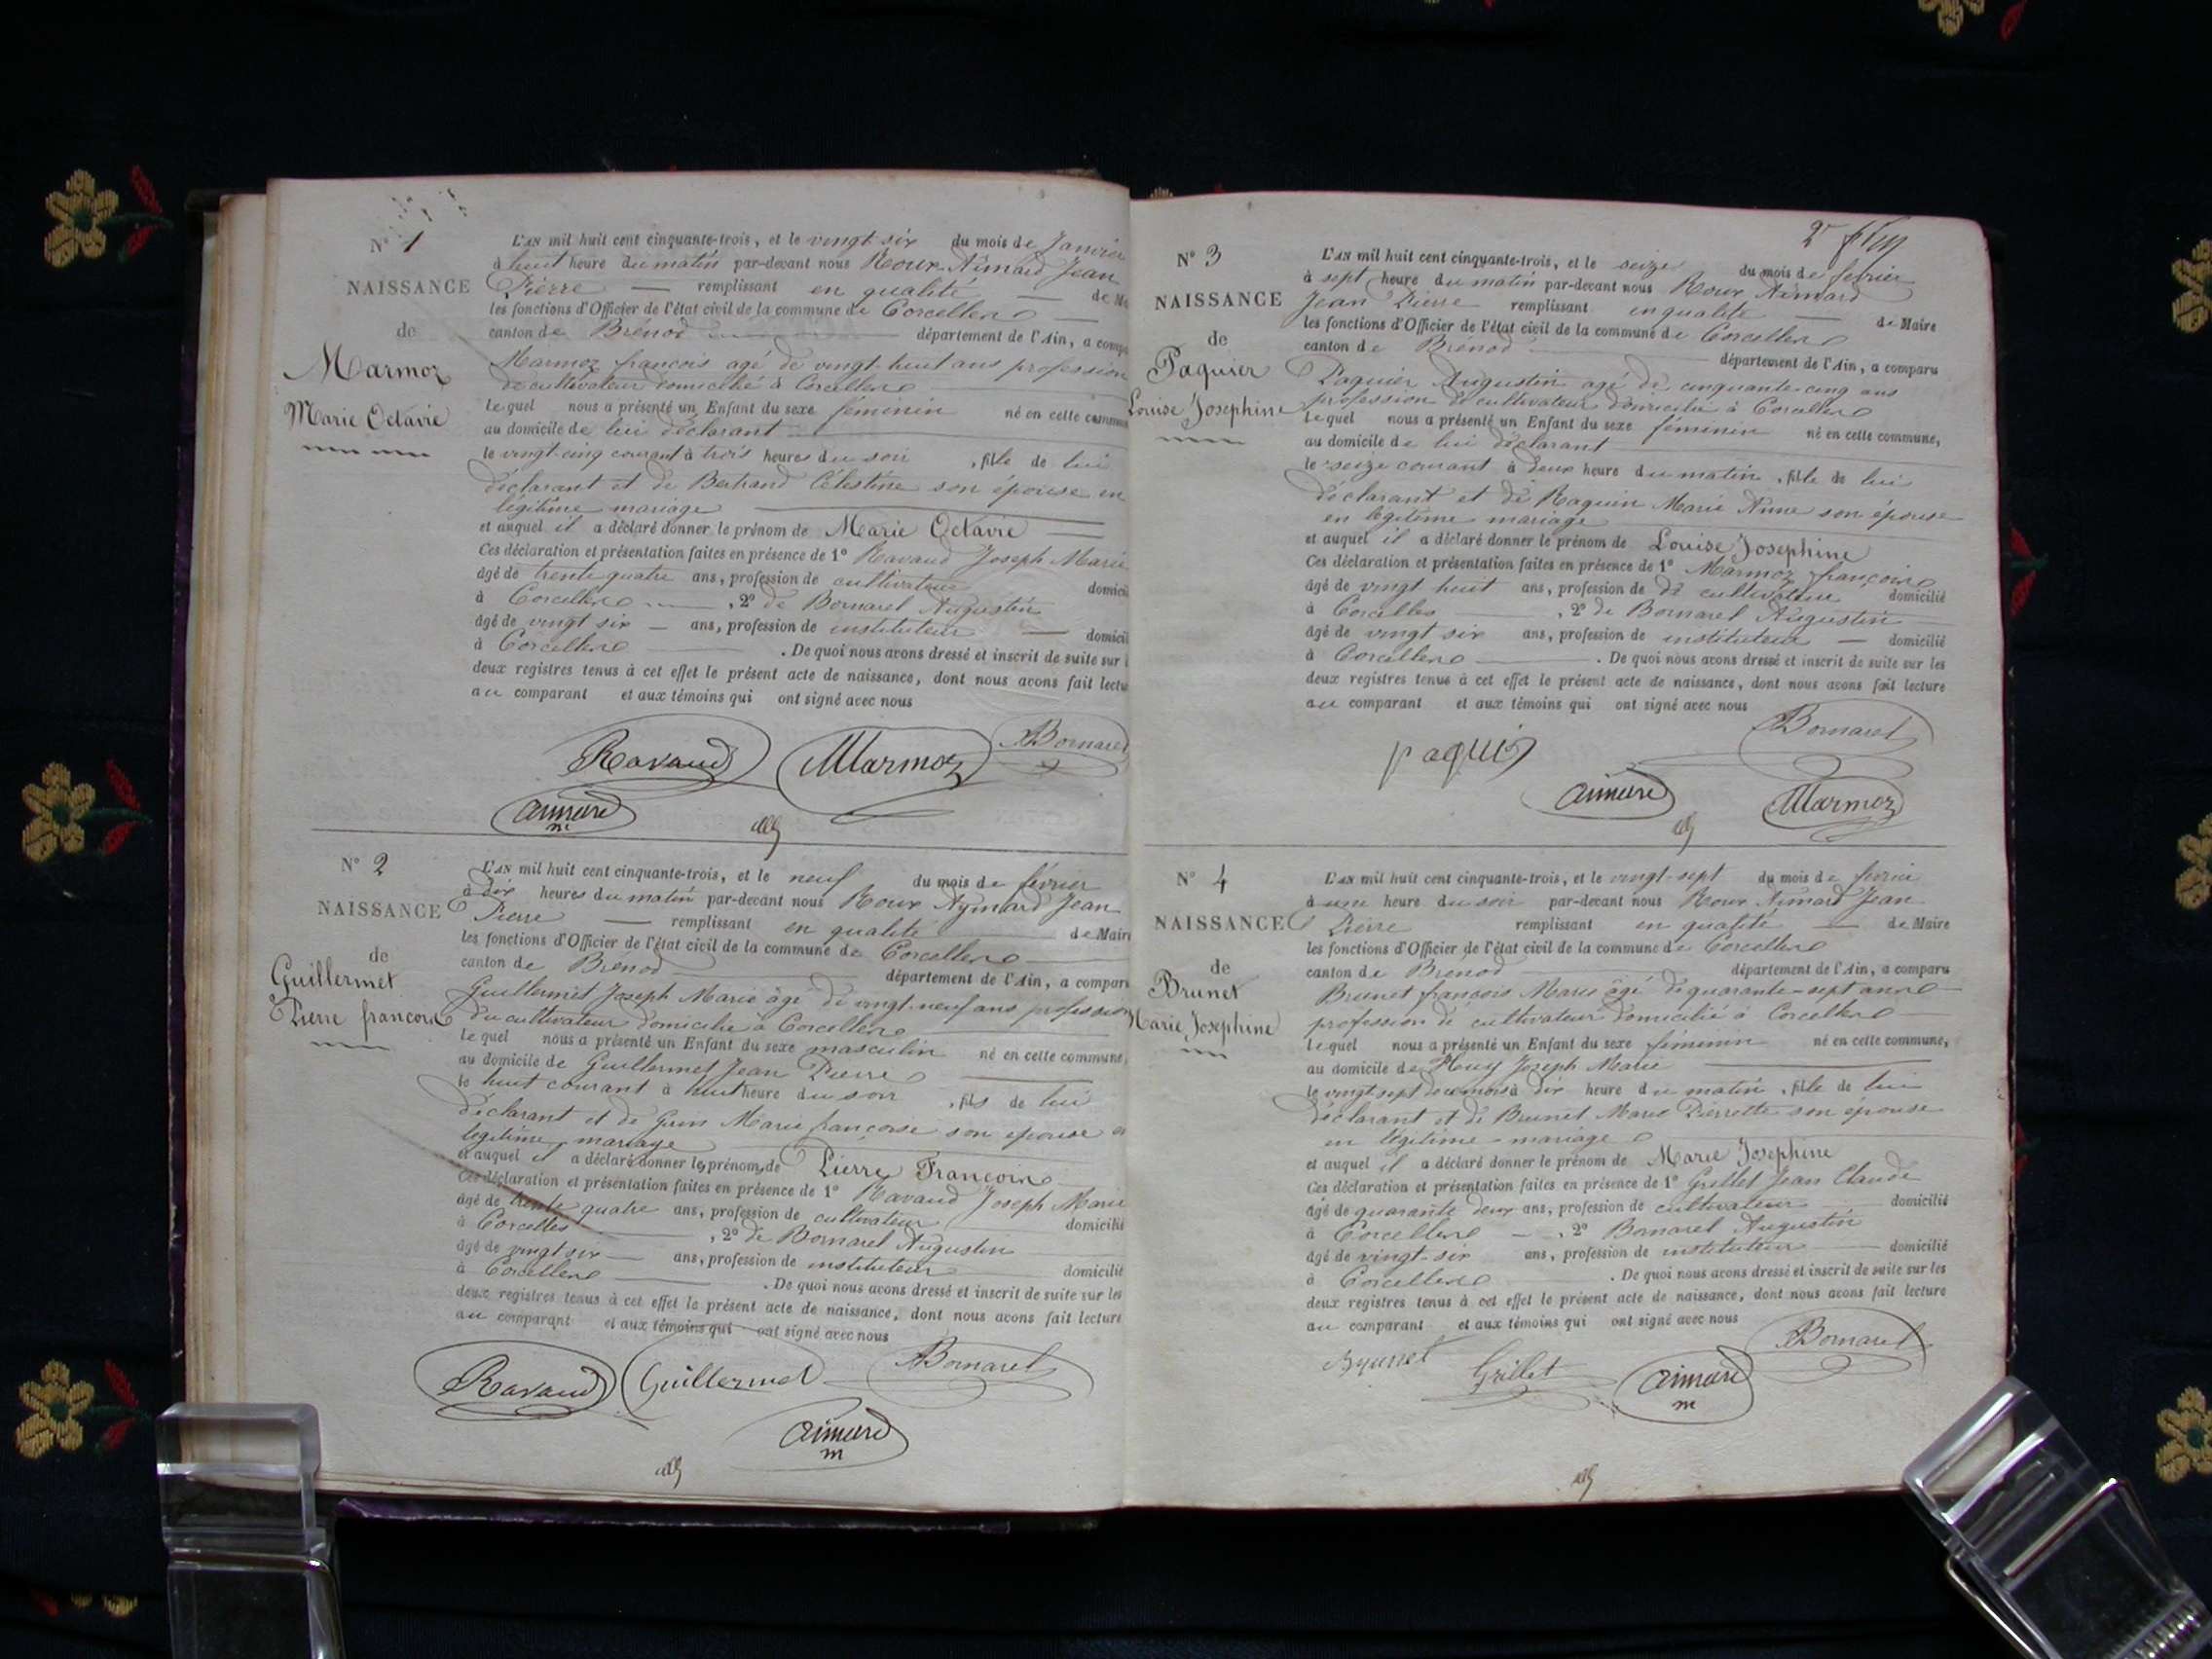 N° 1
NAISSANCE
de
Marmoz
Marie Octavie
L'AN mil huit cent cinquante-trois, et le vingt six du mois de Janvier
à huit heure du matin par-devant nous Roux-Aimard Jean
Pierre remplissant en qualité de
les fonctions d'Officier de l'état civil de la commune de Corcelles
canton de Brénod département de l'Ain, a
Marmoz françois agé de vingt huit ans profession
de cultivateur domicilié à Corcelles
lequel nous a présenté un Enfant du sexe féminin né en cette
au domicile de lui déclarant
le vingt-cinq courant à trois heures du soir , fille de lui
déclarant et de Bertrand Célestine son épouse en
légitime mariage
et auquel il a déclaré donner le prénom de Marie Octavie
Ces déclaration et présentation faites en présence de 1° Ravaud Joseph Marie
âgé de trente quatre ans, profession de cultivateur
à Corcelles , 2° de Bornarel Augustin
âgé de vingt six ans, profession de instituteur
à Corcelles . De quoi nous avons dressé et inscrit de suite sur
deux registres tenus à cet effet le présent acte de naissance, dont nous avons fait
au comparant et aux témoins qui ont signé avec nous
Ravaud Marmoz Bornarel
aimard
m
N° 2
NAISSANCE
de
Guillermet
Pierre francois
L'AN mil huit cent cinquante-trois, et le neuf du mois de février
à dix heures du matin par-devant nous Roux Aymard Jean
Pierre remplissant en qualité de Maire
les fonctions d'Officier de l'état civil de la commune de Corcelles
canton de Brénod département de l'Ain, a
Guillermet Joseph Marie âgé de vingt-neuf ans profession
de cultivateur domicilié à Corcelles
lequel nous a présenté un Enfant du sexe masculin né en cette commune,
au domicile de Guillermet Jean Pierre
le huit courant à huit heure du soir , fils de lui
déclarant et de Marie françoise son épouse
légitime mariage
et auquel il a déclaré donner le prénom de Pierre François
Ces déclaration et présentation faites en présence de 1° Ravaud Joseph Marie
âgé de trente quatre ans, profession de cultivateur domicilié
à Corcelles , 2° de Bornarel Augustin
âgé de vingt six ans, profession de instituteur domicilié
à Corcelles . De quoi nous avons dressé et inscrit de suite sur les
deux registres tenus à cet effet le présent acte de naissance, dont nous avons fait lecture
au comparant et aux témoins qui ont signé avec nous
Ravaud Guillermet Bornarel
aimard
m
N° 3
NAISSANCE
de
Paquier
Louise Josephine
L'AN mil huit cent cinquante-trois, et le seize du mois de février
à sept heure du matin par-devant nous Roux Aimard
Jean Pierre remplissant en qualité de Maire
les fonctions d'Officier de l'état civil de la commune de Corcelles
canton de Brénod département de l'Ain, a comparu
Paquier Augustin agé de cinquante-cinq ans
profession de cultivateur domicilié à Corcelles
lequel nous a présenté un Enfant du sexe féminin né en cette commune,
au domicile de lui déclarant
le seize courant à deux heure du matin , fille de lui
déclarant et de Raquin Marie Anne son épouse
en légitime mariage
et auquel il a déclaré donner le prénom de Louise Josephine
Ces déclaration et présentation faites en présence de 1° Marmoz françois
âgé de vingt huit ans, profession de de cultivateur domicilié
à Corcelles , 2° de Bornarel Augustin
âgé de vingt six ans, profession de instituteur domicilié
à Corcelles . De quoi nous avons dressé et inscrit de suite sur les
deux registres tenus à cet effet le présent acte de naissance, dont nous avons fait lecture
au comparant et aux témoins qui ont signé avec nous
Bornarel
aimard Marmoz
N° 4
NAISSANCE
de
Brunet
Marie Josephine
L'AN mil huit cent cinquante-trois, et le vingt-sept du mois de fevrier
à une heure du soir par-devant nous Roux Aimard Jean
Pierre remplissant en qualité de Maire
les fonctions d'Officier de l'état civil de la commune de Corcelles
canton de Brénod département de l'Ain, a comparu
Brunet françois Marie âgé de quarante-sept ans
profession de cultivateur domicilié à Corcelles
lequel nous a présenté un Enfant du sexe féminin né en cette commune,
au domicile de Joseph Marie
le vingt sept du mois à dix heure du matin , fille de lui
déclarant et de Brunet Marie Pierrette son épouse
en légitime mariage
et auquel il a déclaré donner le prénom de Marie Josephine
Ces déclaration et présentation faites en présence de 1° Grillet Jean Claude
âgé de quarante deux ans, profession de cultivateur domicilié
à Corcelles , 2° Bornarel Augustin
âgé de vingt-six ans, profession de instituteur domicilié
à Corcelles . De quoi nous avons dressé et inscrit de suite sur les
deux registres tenus à cet effet le présent acte de naissance, dont nous avons fait lecture
au comparant et aux témoins qui ont signé avec nous
Brunet Grillet aimard Bornarel
m